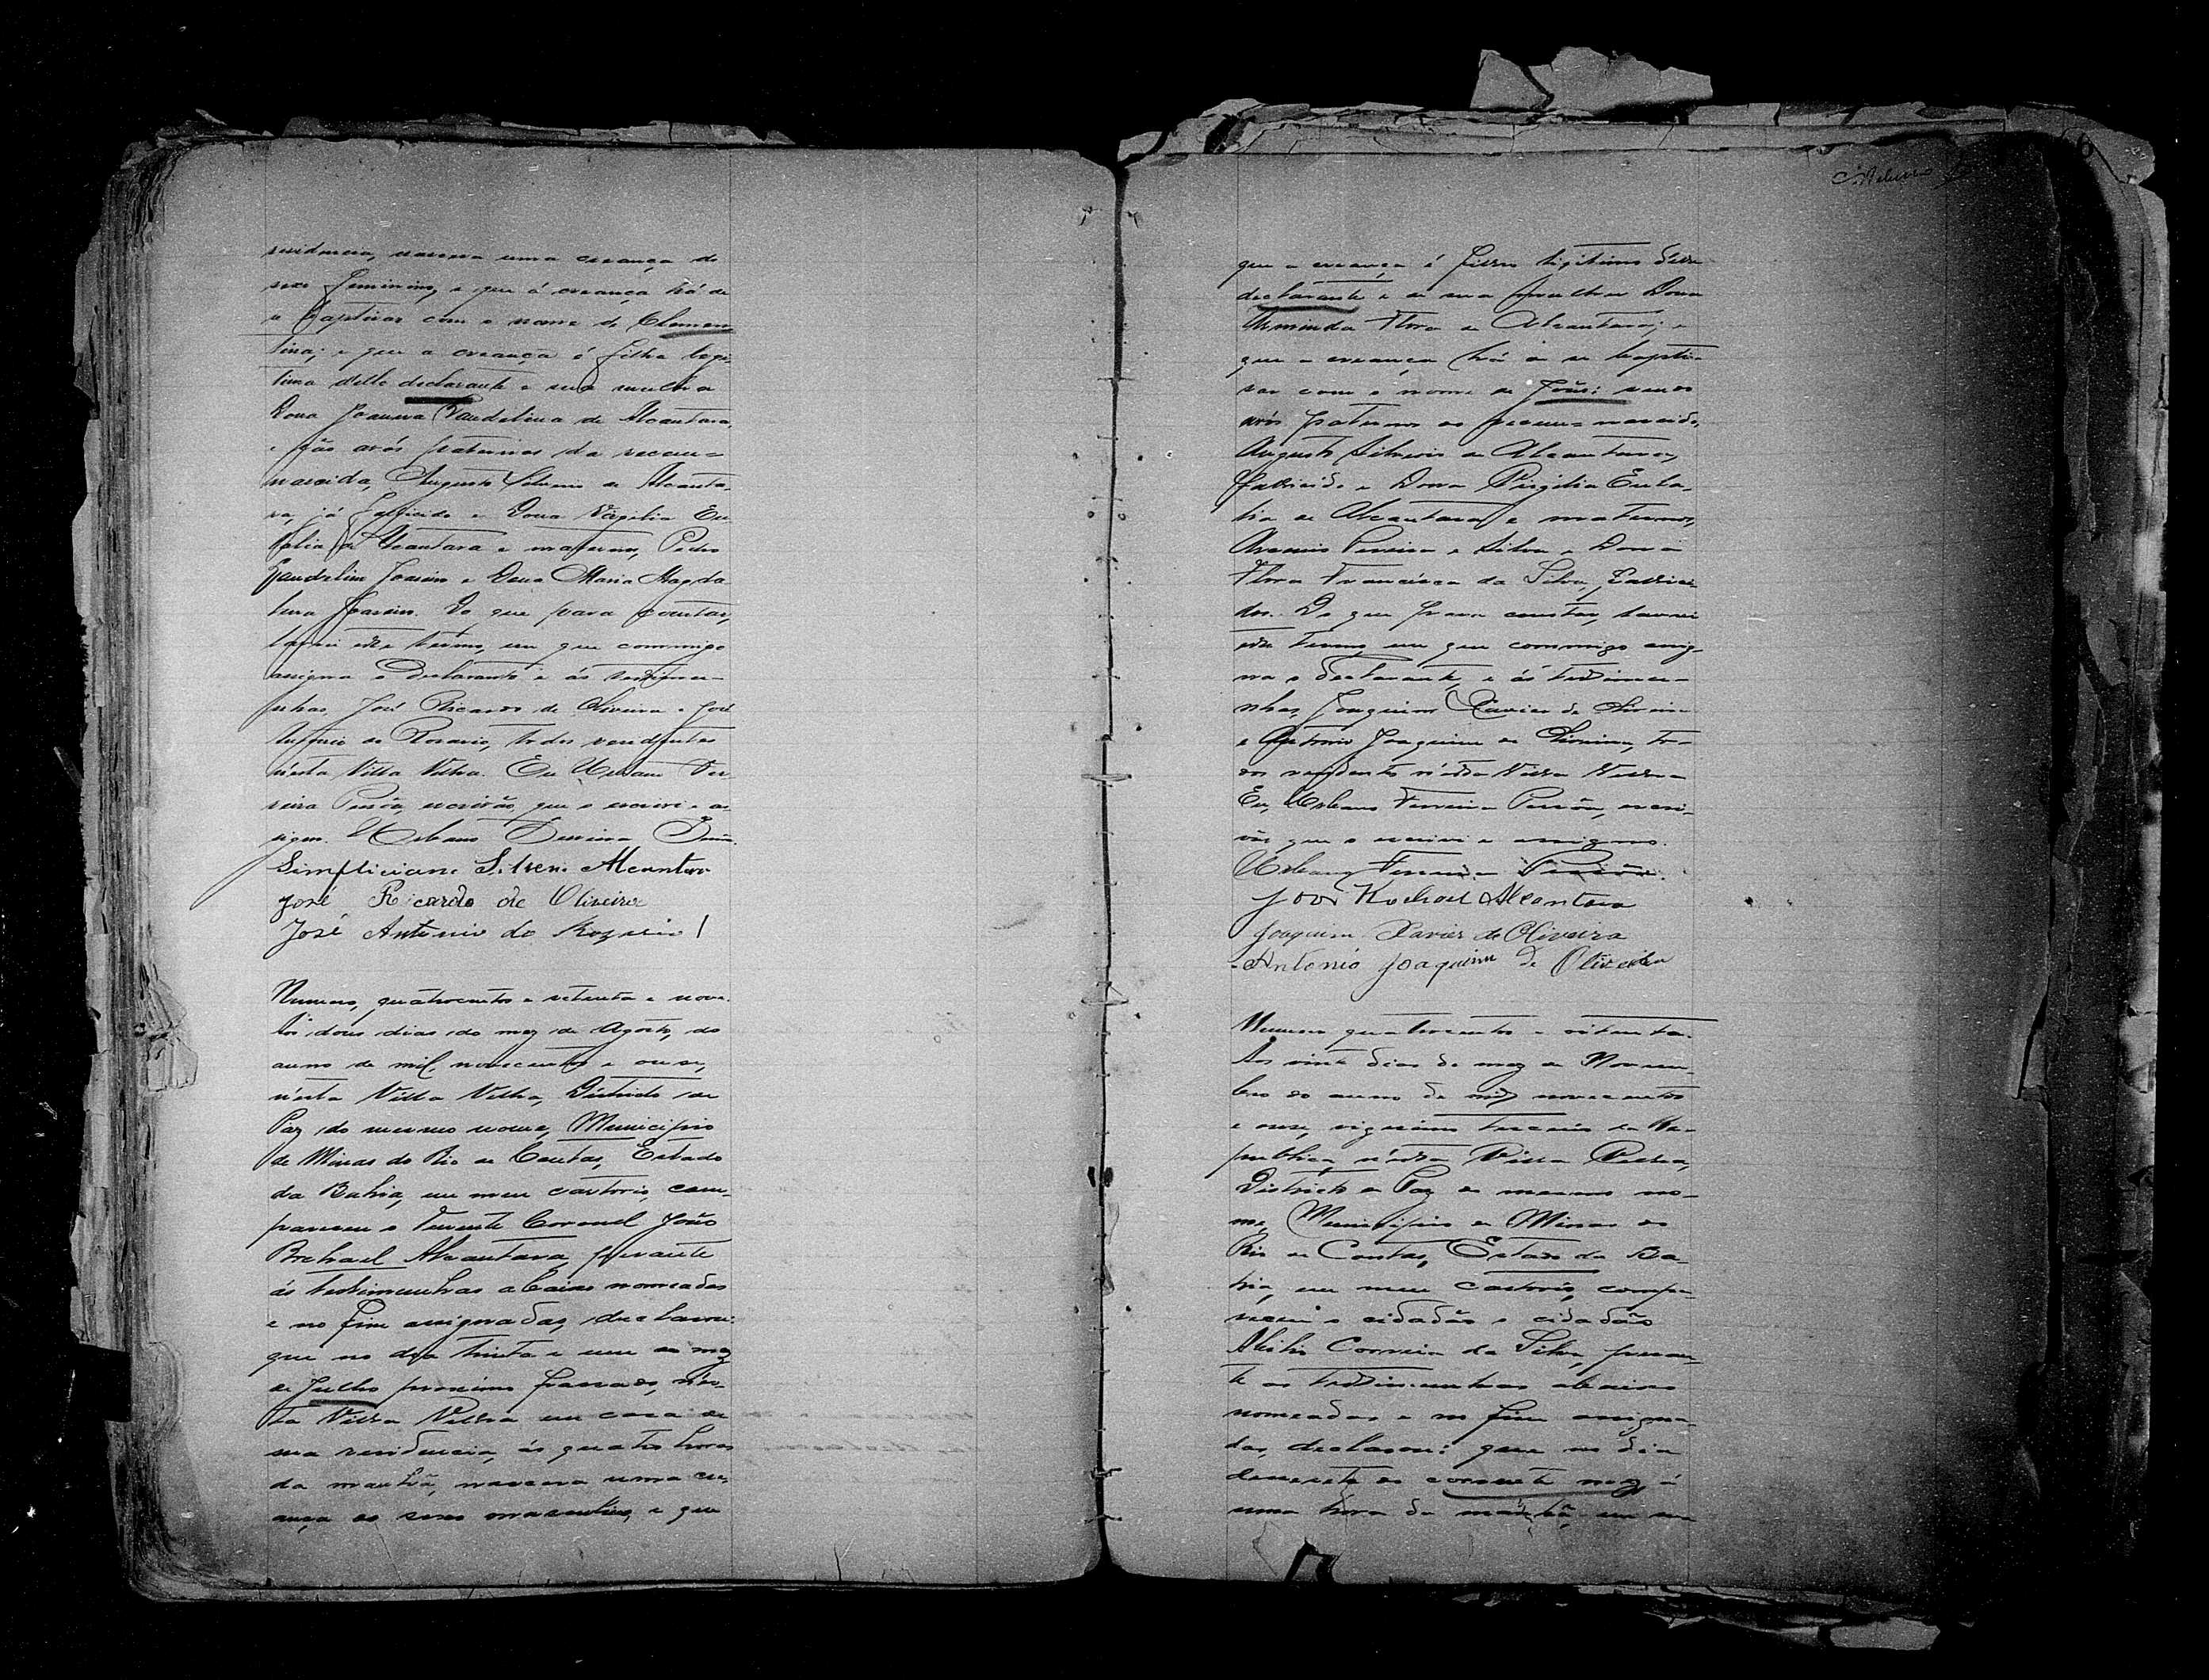 residencia, nascera uma creança do
sexo feminino, e que á creança há de
se baptisar com o nome de Clemen
tina; e que a creança é filha legi-
tima delle declarante e sua mulher
Dona Joanna Vandelina de Alcantara,
e são avós paternos da recem=
nascida, Augusto Silverio de Alcanta-
ra, já fallecido e Dona Virgilia Eu
lalia de Alcantara e maternos, Pedro
Gaudelim e Dona Maria Magda
lena. Do que para constar,
lavrei este termo, em que commigo
assigna o declarante e ás testimu-
nhas, José Ricardo de Oliveira e José
Antonio do Rosario, todos residentes
n'esta Villa Velha. Eu Urbano Fer
reira Pessôa, escrivão, que o escrivi e as
signo. Urbano Ferreira
Simpliciano Silverio Alcantara
José Ricardo de Oliveira
José Antonio do Rozario
Numero, quatrocentos e setenta e nove.
Aos dous dias do mez de Agosto, do
anno de mil novecentos e onse,
n'esta Villa Velha, Districto de
Paz do mesmo nome, Municipio
de Minas do Rio de Contas, Estado
da Bahia, em meu cartorio, com-
pareceu o Tenente Coronel João
Alcantara, perante
ás testimunhas abaixo nomeadas
e no fim assignadas, declarou:
que no dia trinta e um do mez
de Julho proximo passado, n'es-
ta Villa Velha em casa de
sua residencia, ás quatro horas
da manhã, nascera uma cre-
ança do sexo masculino, e que
que a creança é filho legitimo d'elle
declarante e de sua mulher Dona
Arminda Flora de Alcantara; e
que a creança há de se baptis-
sar com o nome de João: seus
avós paternos do recem=nascido,
Augusto Silverio de Alcantara,
fallecido e Dona Virgilia Eula-
lia de Alcantara e maternos,
Pereira e Silva e Dona
Flora Francisca da Silva, falleci
dos. Do que para constar, lavrei
este termo, em que commigo assig-
na o declarante, e ás testimu-
nhas, Joaquim Xavier de Oliveira
e Antonio Joaquim de Oliveira, to-
dos residentes n'esta Villa Velha
Eu, Urbano Ferreira Pessôa, escri-
vão que o escrivi e assigno.
Urbano Ferreira Pessôa.
João Alcantara
Joaquim Xavier de Oliveira
Antonio Joaquim de Oliveira
Numero quatrocentos e oitenta.
Aos vinte dias do mez de Novem-
bro do anno de mil novecentos
e onse, vigesimo terceiro da Re-
publica, n'esta Villa Velha,
Districto de Paz do mesmo no-
me, Municipio de Minas do
Rio de Contas, Estado da Ba-
hia, em meu Cartorio, compa-
receu o cidadão o cidadão
Abilio Correia da Silva, peran-
te as testimunhas abaixo
nomeadas e no fim assigna-
das, declarou: que no dia
desesete do corrente mez, á
uma hora da manhã, em sua